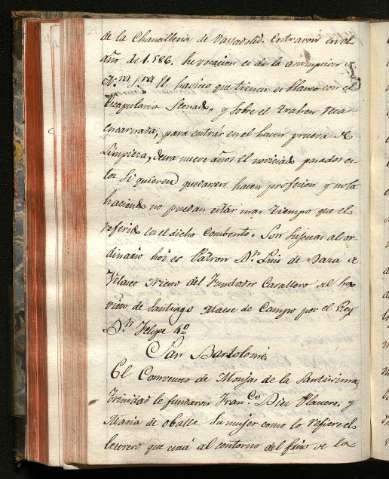 de la Chancilleria de Valladolid. Entraron en el
año de 1586. Su vocacion es de la assumpcion de
Nra. Sra. El havito que tienen es blanco con el
Escapulario , y sobre el
encarnada, para entrar en el hacen prueva de
Limpieza, dura nueve años el noviciado pasados
los si quieren quedarse hacen profesion y no la
haciendo no puedan estar mas tiempo que el
referido en el dicho Combento. Son sujetas al or-
dinario hoi es Patron Dn. Luis de
Velasco Nieto del Fundador Cavallero del ha-
vito de Santiago Maese de Campo por el Rey
Dn. Felipe 4o.
San Bartolome
El Comvento de Monjas de la Santisima
Trinidad le fundaron Franco. Diez y
Maria de Ovalle Su mujer como lo refiere el
letrero que está al contorno del de la